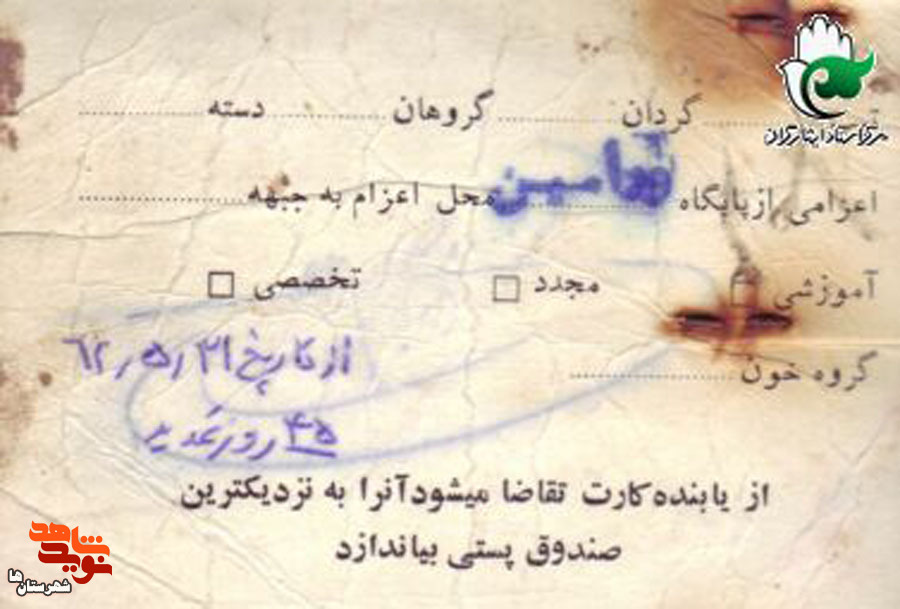 گردان گروهان دسته
اعزامی از پایگاه محل اعزام به جبهه
آموزشی مجدد تخصصی
گروه خون
از تاریخ ۶۲٫۵٫۲۱
۴۵ روز تمدید
از یابنده کارت تقاضا میشود آنرا به نزدیکترین
صندوق پستی بیاندازد
مرکز اسناد ایثارگران
نوید شاهد
شهرستان ها